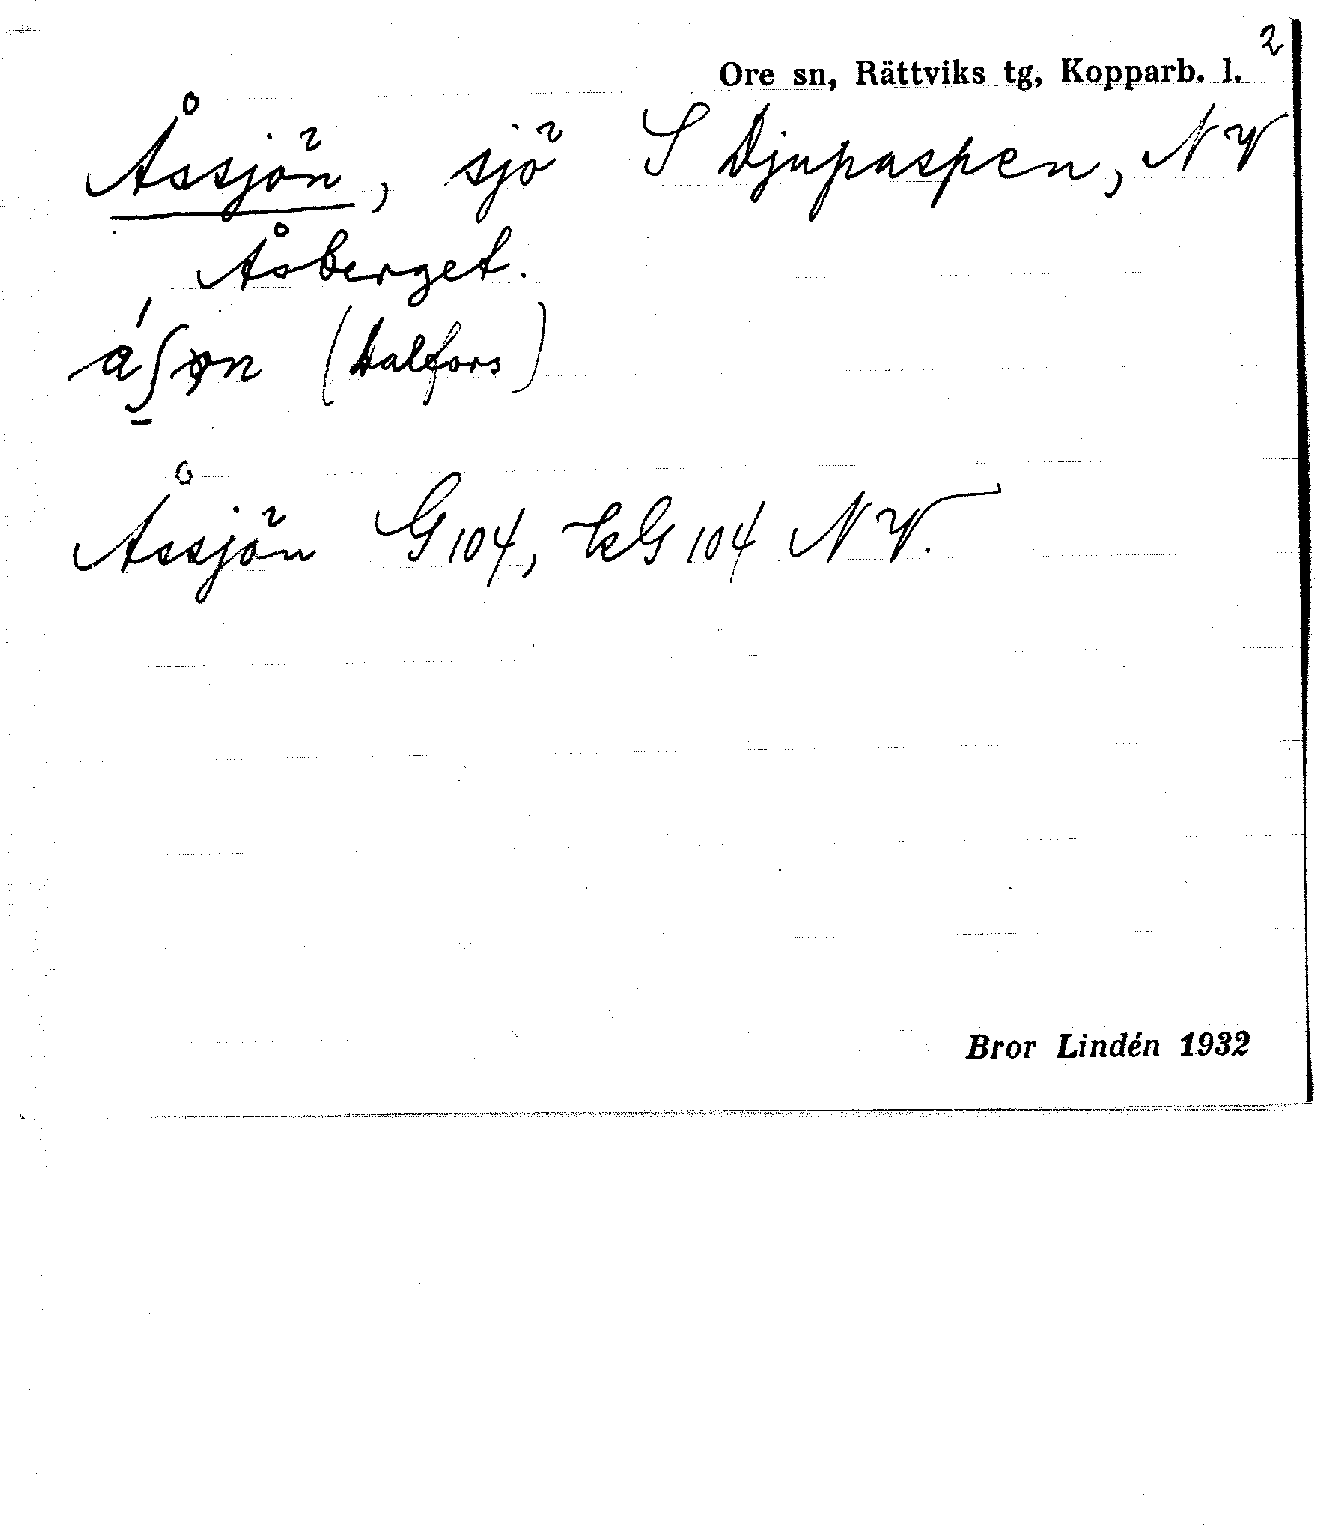 2
Ore sn, Rättviks tg, Kopparb. l.
Åssjön, sjö S Djupaspen, NV
Åsberget.
(Dalfors)
Åssjön G 104, EkG 104 NV.
Bror Lindén 1932